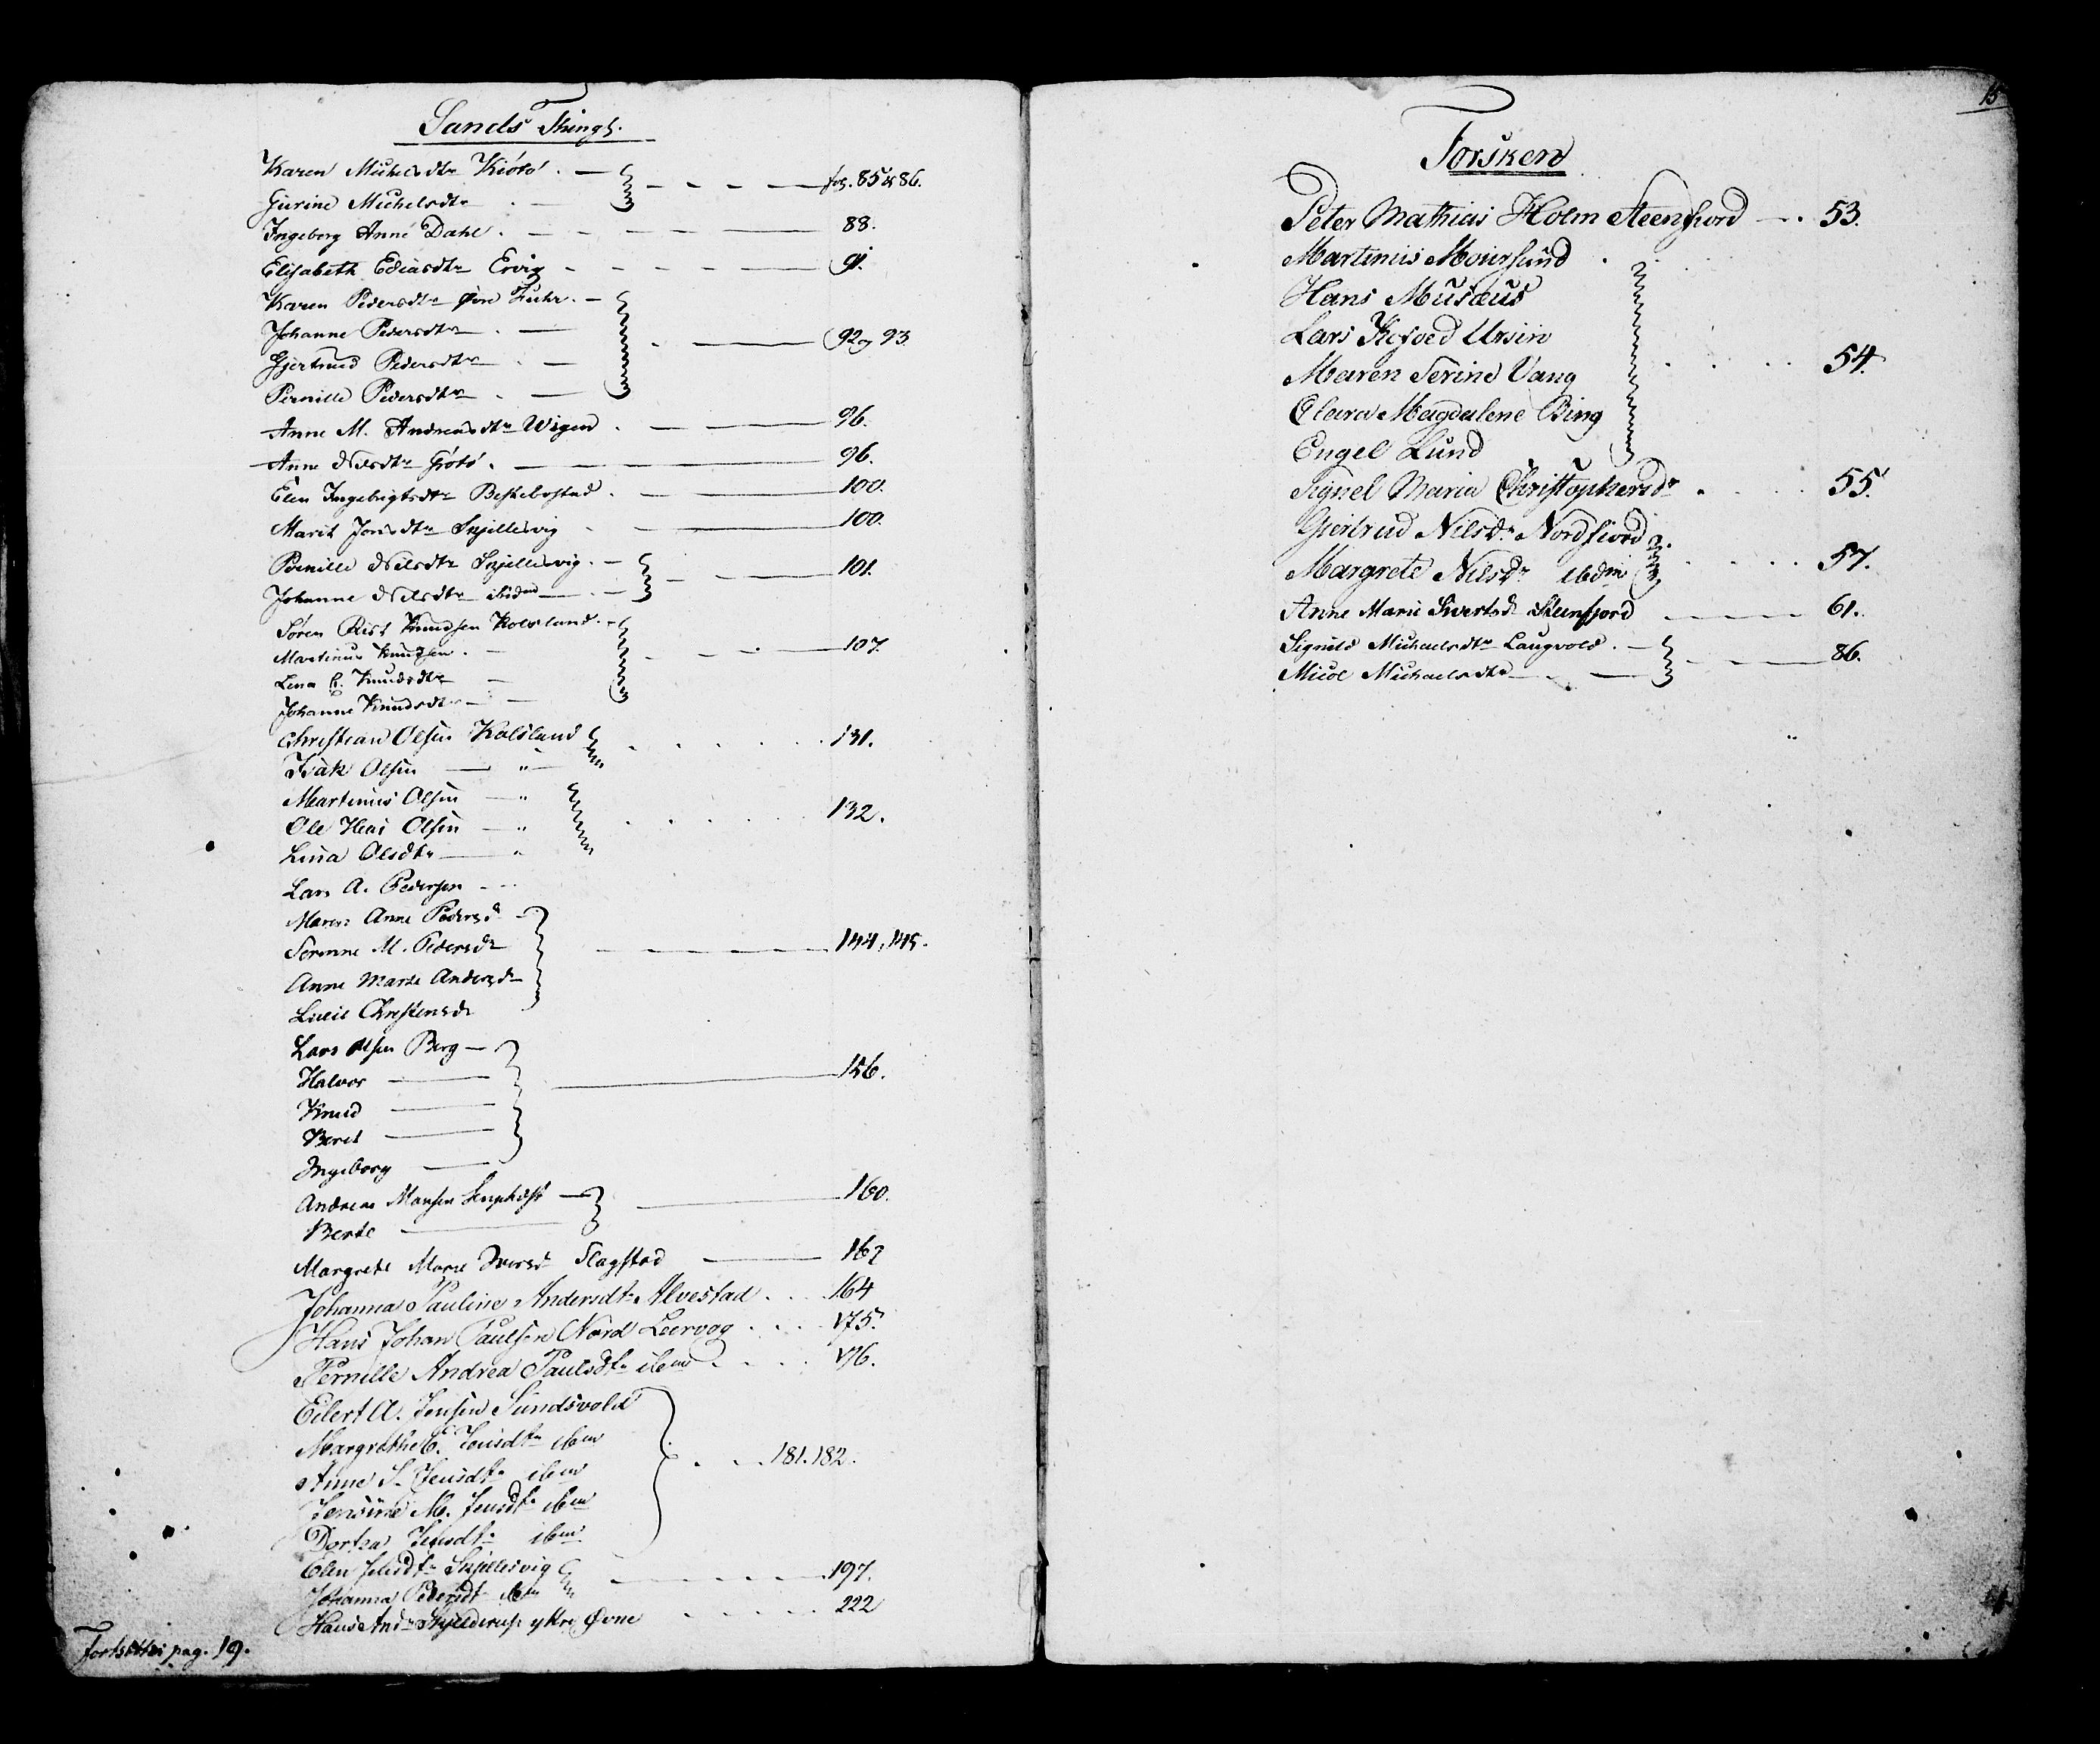 Sands Thingl.
Karen Michelsdtr Kiötö . —
fol. 85 & 86.
Gurine Michelsdtr . —
Ingeborg Anne Dahl . — 88.
Elisabeth Ediasdtr Ervig — 91.
Karen Pedersdtr Øvre Fuhr. —
Johanne Pedersdtr . —
92 og 93
Gjertrud Pedersdtr . —
Pernille Pedersdtr . —
Anne M. Andreasdtr Wigen . — 96.
Anne Nilsdtr Grötö . — 96.
Elen Ingebrigtsdtr Beskebostad . — 100.
Marit Jonsdtr Skjellesvig — 100.
Pernille Nilsdtr Skjellesvig . —
101.
Johanne Nilsdtr ibidm — . —
Søren Rist Knudsen Kolsland . —
Martinus Knudsen . —
107.
Lena C. Knudsdtr —
Johanne Knudsdtr — —
Christian Olsen Kolsland
131.
Isak Olsen — " —
Martinus Olsen — "
Ole Heas Olsen — " 132.
Lina Olsdtr — "
Lars A. Pedersen - - -
Maren Anne Pedersd —
Serinne M. Pedersdr
144, 145.
Anne Marie Andersdr —
Lucie Christensdr
Lars Olsen Berg —
Halvor —
156.
Knud —
Beret —
Ingeborg —
Andreas Monsen —
160.
Berte —
Margrete Marie Iversdr Slagstad — 162
Johanna Pauline Andersdtr Alvestad . . . 164
Hans Johan Paulsen Nord Leervog . . . 175.
Pernille Andrea Paulsdtr ibm . . . 176.
Eilert A. Jensen Sundsvold
Margrethe C. Jensdtr ibm
181. 182.
Anne S. Jensdtr ibm
Jensine M. Jensdtr ibm
Dortea Jensdtr ibm
Elen Jensdtr Skjellesvig
197.
Johanna Pedersdt ibm
Hans And. Skjelderup ytre Øvne 222
Fortsættes pag. 19.
15
Forsken
Peter Mathias Holm Steenfiord — . 53.
Martinus Moursund .
Hans Musæus
Lars Kofoed Ursin
Maren Serine Vang
54.
Clara Magdalene Bing
Engel Lund
Signel Maria Christophersdr . 55.
Gjertrud Nilsdr Nordfiord
57.
Margrete Nilsdr ibdm
Anne Marie Sivertsdr Steenfjord — 61.
Sigrild Michaelsdtr Laugvold . —
86.
Michaelsdtr — . —